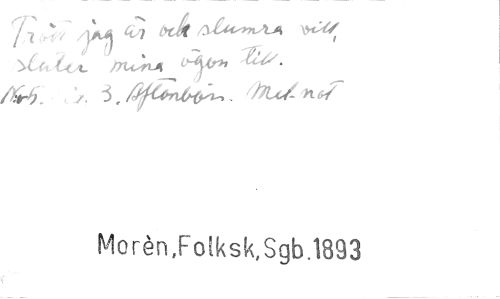 Trött jag är och slumra vill,
sluter mina ögon till.
3. Aftonbön. Mel-not
Morèn,Folksk,Sgb.1893